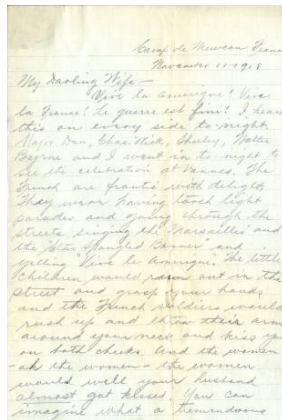 Camp de Meucon France
November 11-1918
My Darling Wife—
Vive la amerique! Vive
la France! Le guerre est fini! I hear
this on every side to night.
Major Dan, Chas. Wick, Shurley, Walter
Byrne and I went in to night to
see the celebration at Vannes. The
French are frantic with delight.
They were having torch light
parades and going through the
streets singing the "Marsailles" and
the "Star Spangled Banner" and
yelling "Vive le Amerique" The little
children would run out in the
street and grasp your hand,
and the French soldiers would
rush up and throw their arms
around your neck and kiss you
on both cheeks. And the women
- ah the women - the women
would well your husband
almost got kissed. You can
imagine what a tremendous